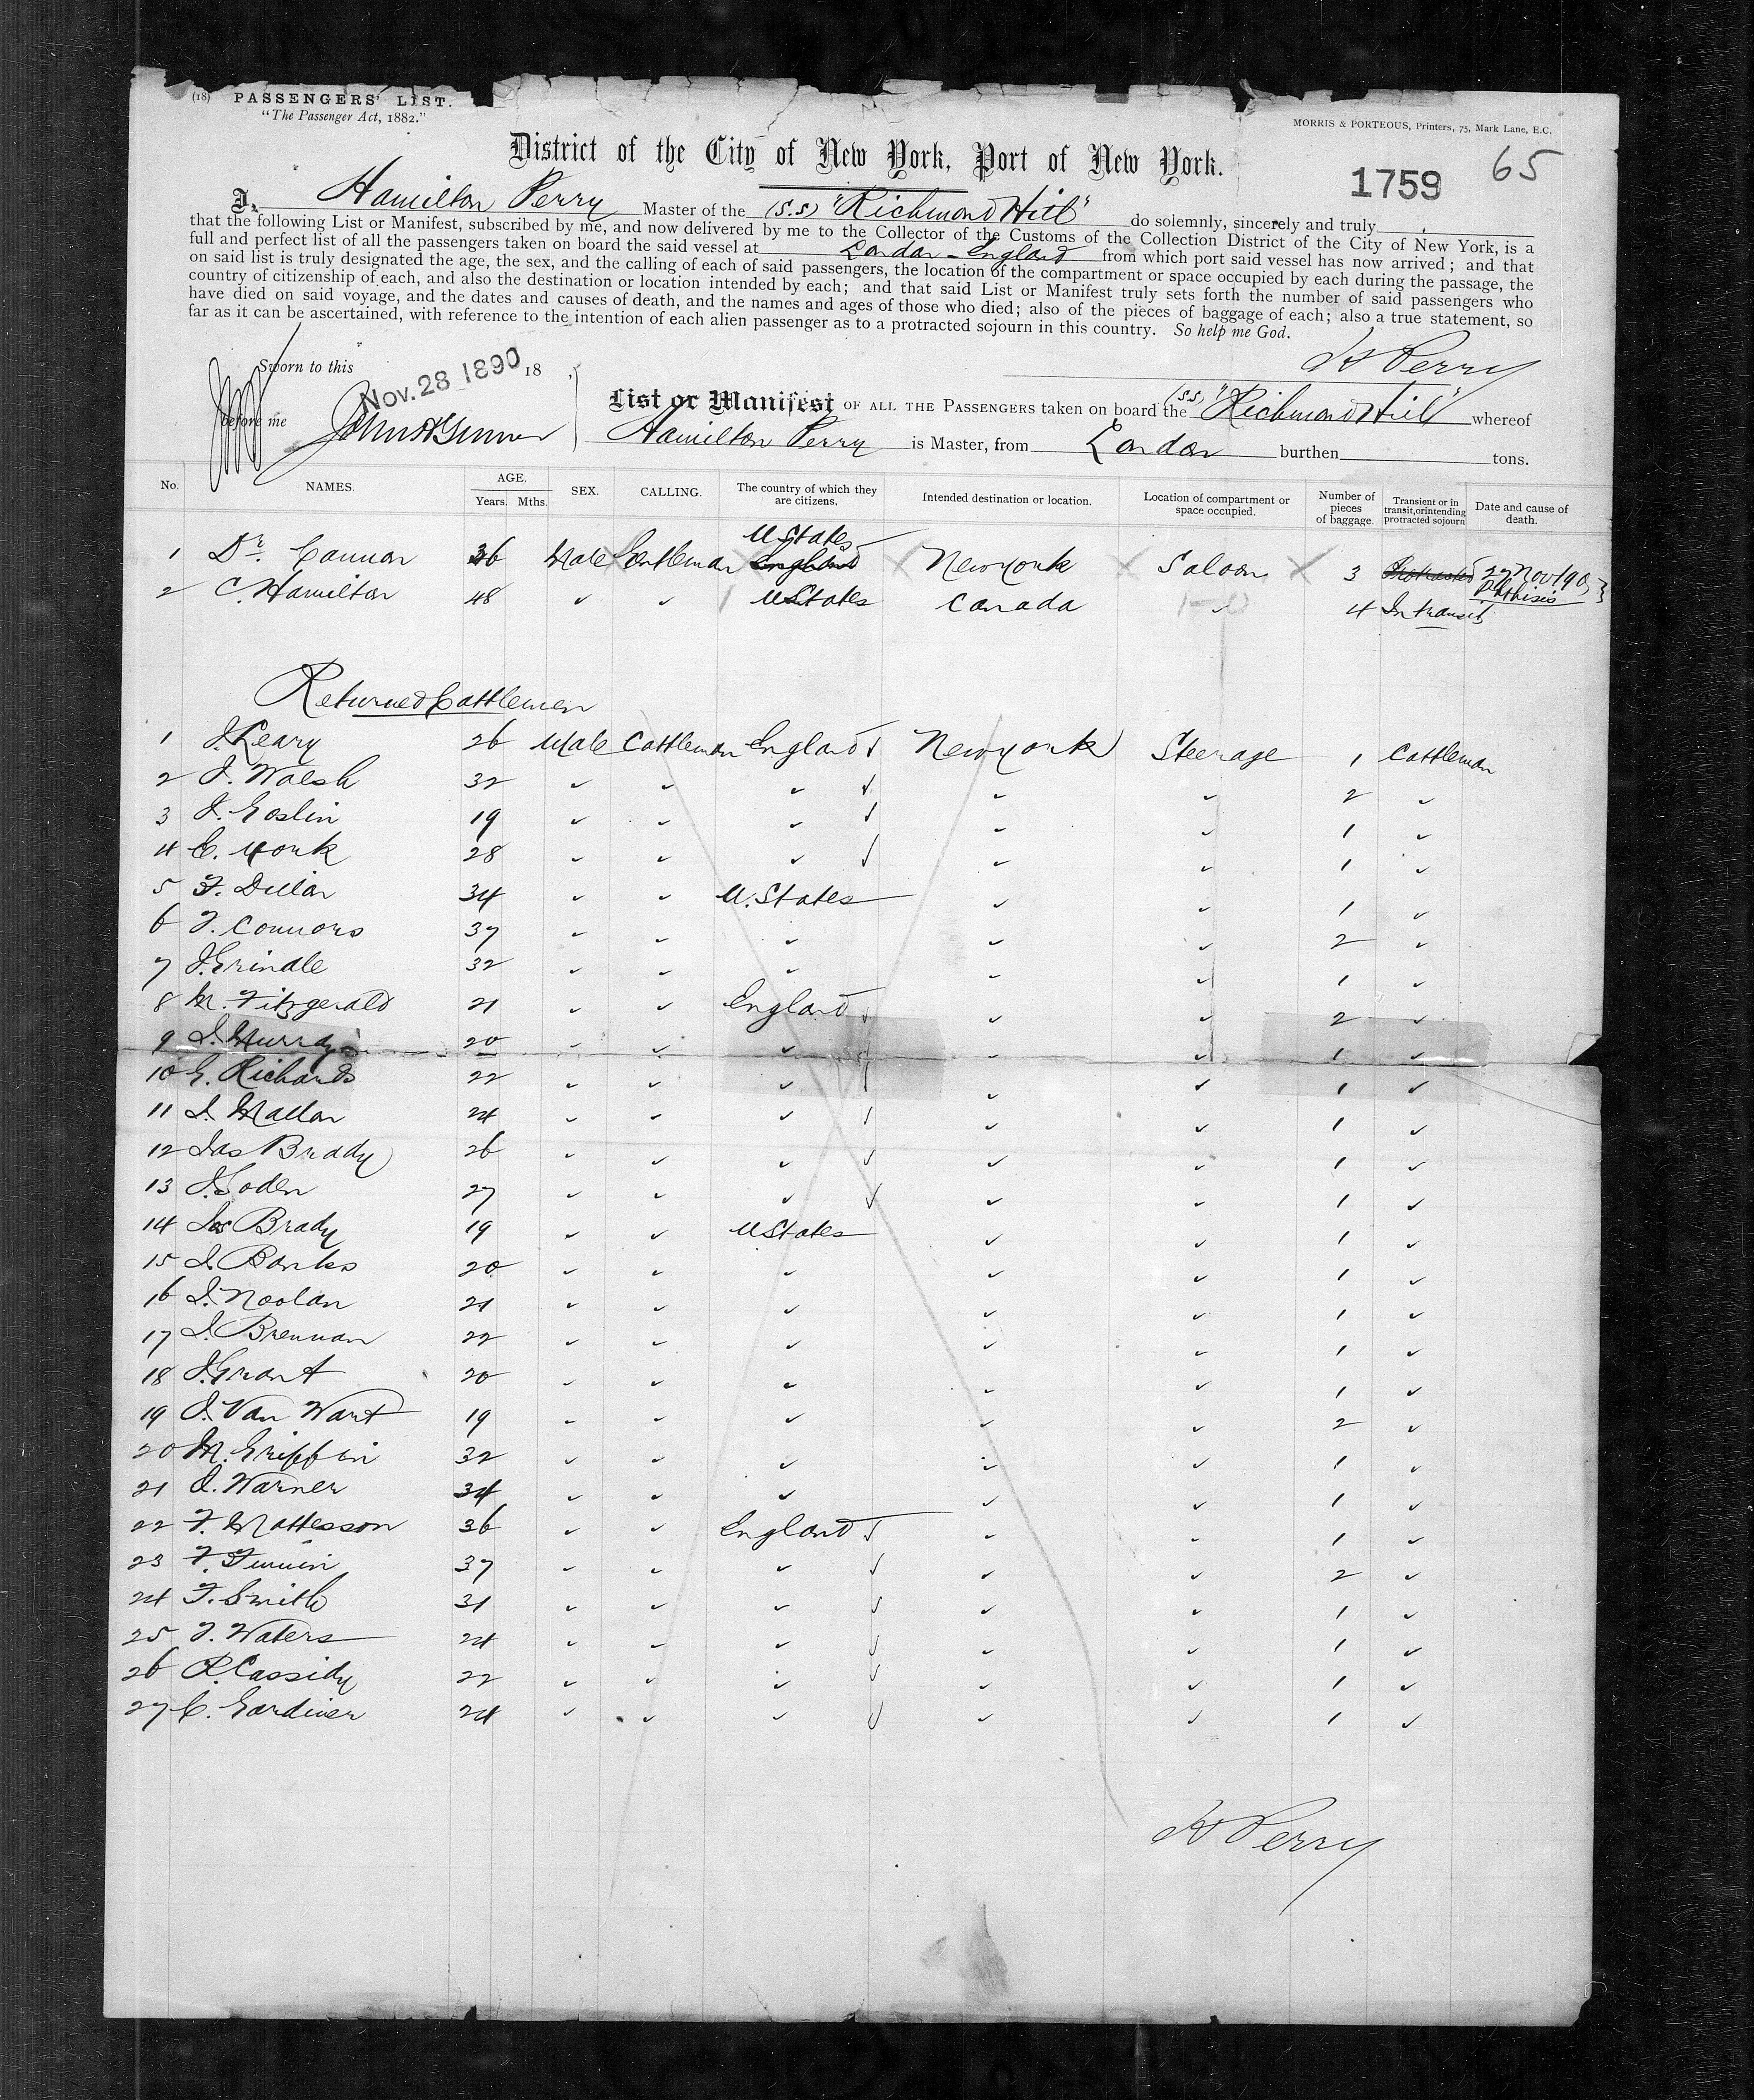 (18) PASSENGERS' LIST.
"The Passenger Act, 1882."
MORRIS & PORTEOUS, Printers, 75, Mark Lane, E.C.
District of the City of New York, Port of New York.
1759 65
I, Hamilton Perry Master of the (S.S) "Richmond Hill" do solemnly, sincerely and truly
that the following List or Manifest, subscribed by me, and now delivered by me to the Collector of the Customs of the Collection District of the City of New York, is a
full and perfect list of all the passengers taken on board the said vessel at London - England from which port said vessel has now arrived; and that
on said list is truly designated the age, the sex, and the calling of each of said passengers, the location of the compartment or space occupied by each during the passage, the
country of citizenship of each, and also the destination or location intended by each; and that said List or Manifest truly sets forth the number of said passengers who
have died on said voyage, and the dates and causes of death, and the names and ages of those who died; also of the pieces of baggage of each; also a true statement, so
far as it can be ascertained, with reference to the intention of each alien passenger as to a protracted sojourn in this country. So help me God.
H Perry
Sworn to this Nov. 28 1890 18 ,
before me
List or Manifest OF ALL THE PASSENGERS taken on board the (S.S) "Richmond Hill" whereof
Hamilton Perry is Master, from London burthen tons.
No. NAMES. AGE. Years. Mths. SEX. CALLING. The country of which they are citizens. Intended destination or location. Location of compartment or space occupied. Number of pieces of baggage. Transient or in transit, or intending protracted sojourn Date and cause of death.
U States
1 Dr. Connor 36 Male Gentleman England New York Saloon 3 Protracted 22 Nov/90 Phthisis
2 C. Hamilton 48 " " U States Canada " 4 In transit
Returned Cattlemen
1 J. Leary 26 Male Cattleman England New York Steerage 1 Cattleman
2 J. Walsh 32 " " " " " 2 "
3 J. Goslin 19 " " " " " 1 "
4 C. York 28 " " " " " 1 "
5 F. Dillon 34 " " U. States " " 1 "
6 F. Connors 37 " " " " " 2 "
7 J. Grindle 32 " " " " " 1 "
8 M. Fitzgerald 21 " " England " " 2 "
9 J. Murray 20 " " " " " 1 "
10 G. Richards 22 " " " " " 1 "
11 J. Mallon 24 " " " " " 1 "
12 Jas Brady 26 " " " " " 1 "
13 J. Soden 27 " " " " " 1 "
14 Jos Brady 19 " " U States " " 1 "
15 J. Banks 20 " " " " " 1 "
16 J. Noolan 21 " " " " " 1 "
17 J. Brennan 22 " " " " " 1 "
18 J. Grant 20 " " " " " 1 "
19 J. Van Wart 19 " " " " " 2 "
20 M. Griffin 32 " " " " " 1 "
21 J. Warner 34 " " " " " 1 "
22 F. Mattesson 36 " " England " " 1 "
23 F. 37 " " " " " 2 "
24 F. Smith 31 " " " " " 1 "
25 F. Waters 24 " " " " " 1 "
26 P. Cassidy 22 " " " " " 1 "
27 C. Gardiner 24 " " " " " 1 "
H Perry